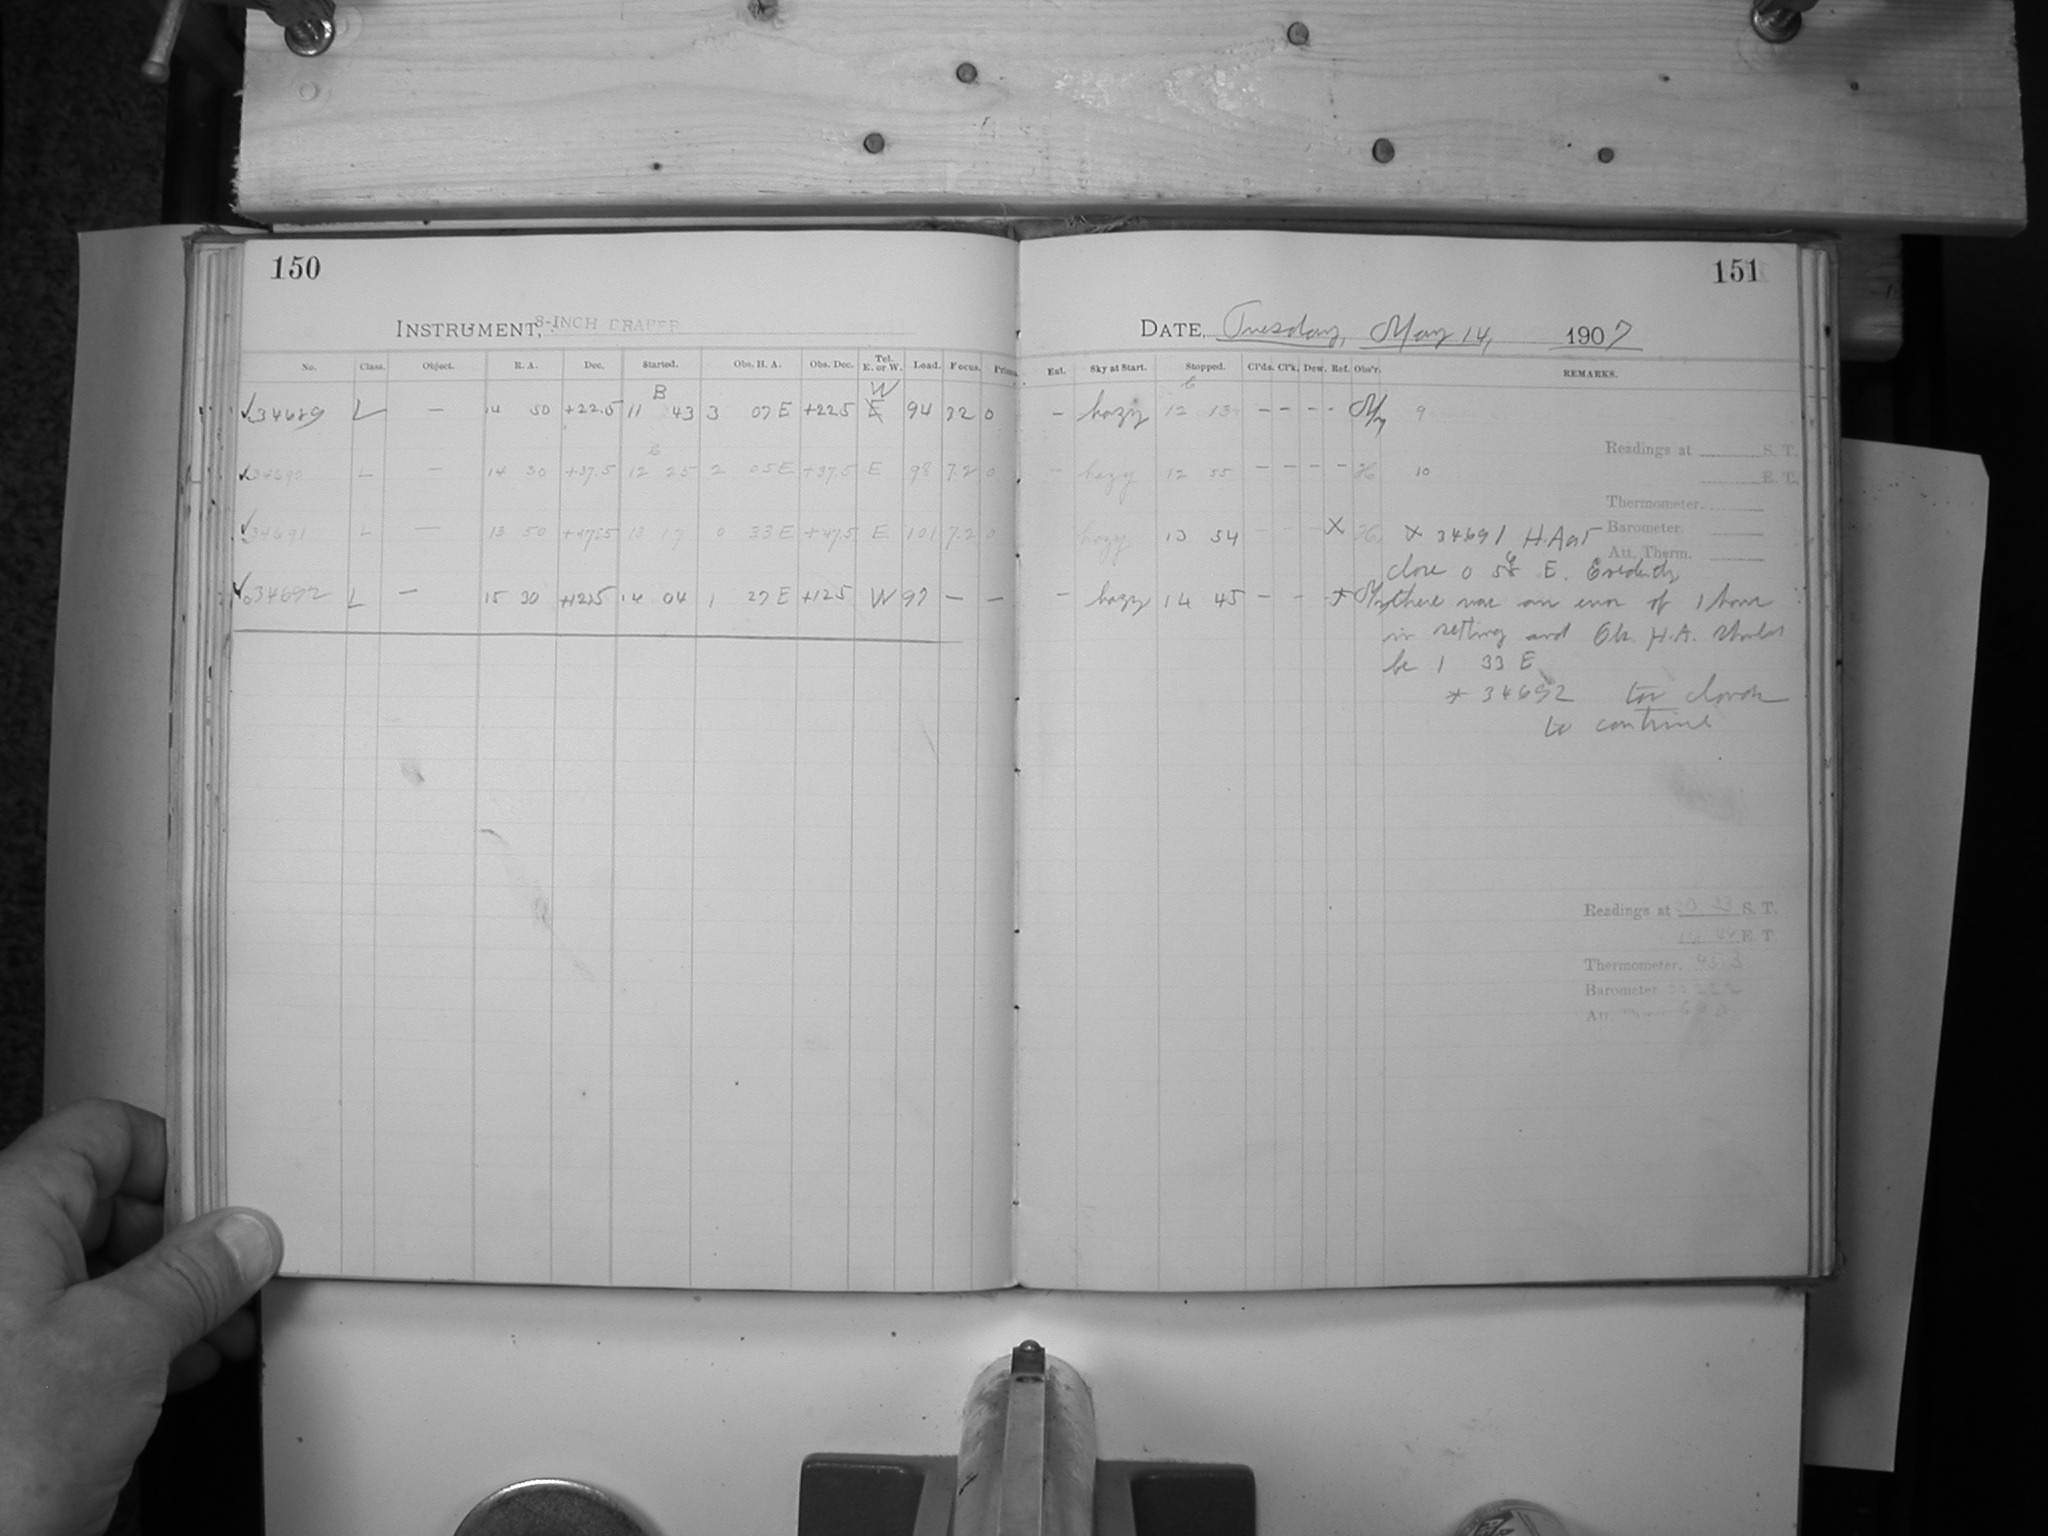 150
INSTRUMENT, 8-INCH DRAPER
No. Class. Object. R. A. Dec. Started. Obs. H. A. Obs. Dec. Tel. E. or W. Load. Focus. Prism.
B W
34689 L — 14 50 +22.5 11 43 3 07 E +22.5 E 94 32 0
34690 L — 14 30 +37.5 12 25 2 05 E +37.5 E 98 7.2 0
34691 L — 13 50 +47.5 13 17 0 33 E +47.5 E 101 7.2 0
34692 L — 15 30 +12.5 14 04 1 27 E +12.5 W 97 — —
151
DATE, Tuesday, May 14, 1907
Est. Sky at Start. Stopped. Cl'ds. Cl'k. Dew. Ref. Obs'r. REMARKS.
— hazy 12 13 - - - - 9
Readings at S. T.
— hazy 12 55 - - - - 10
E. T.
Thermometer.
hazy 13 54 - - - X X 34691 H.A. at
Barometer.
Att. Therm.
close 0 58 E. Evidently
— hazy 14 45 - - - * there was an error of 1 hour
in setting and Obs. H.A. should
be 1 33 E
* 34692 too cloudy
to continue
Readings at S. T.
E. T.
Thermometer.
Barometer
Att.